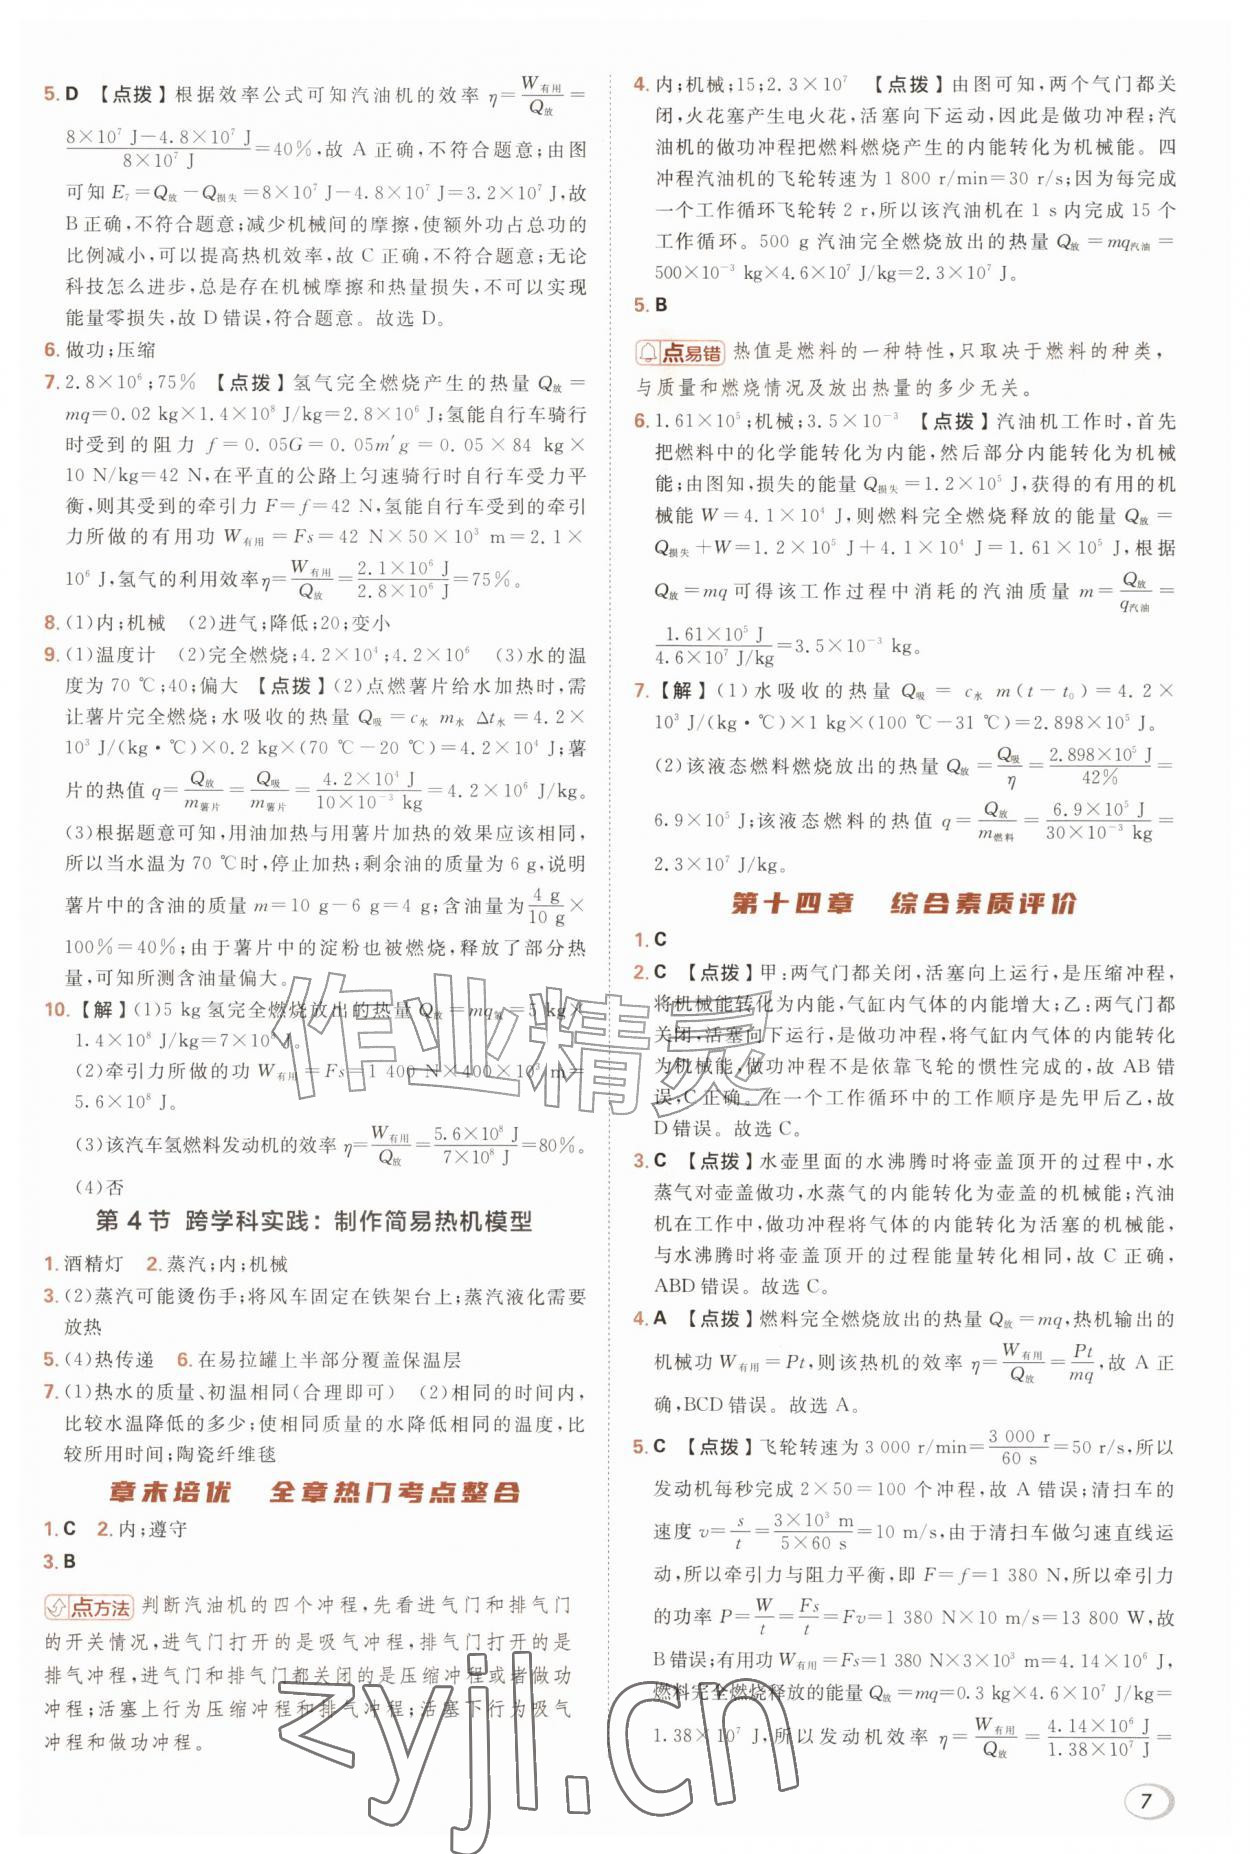 5. D 【点拨】根据效率公式可知汽油机的效率 η=W有用/Q放=
(8×10⁷ J-4.8×10⁷ J)/(8×10⁷ J)=40%,故 A 正确,不符合题意;由图
可知 E₇=Q放-Q损失=8×10⁷ J-4.8×10⁷ J=3.2×10⁷ J,故
B 正确,不符合题意;减少机械间的摩擦,使额外功占总功的
比例减小,可以提高热机效率,故 C 正确,不符合题意;无论
科技怎么进步,总是存在机械摩擦和热量损失,不可以实现
能量零损失,故 D 错误,符合题意。故选 D。
6. 做功;压缩
7. 2.8×10⁶;75% 【点拨】氢气完全燃烧产生的热量 Q放=
mq=0.02 kg×1.4×10⁸ J/kg=2.8×10⁶ J;氢能自行车骑行
时受到的阻力 f=0.05G=0.05m′g=0.05×84 kg×
10 N/kg=42 N,在平直的公路上匀速骑行时自行车受力平
衡,则其受到的牵引力 F=f=42 N,氢能自行车受到的牵引
力所做的有用功 W有用=Fs=42 N×50×10³ m=2.1×
10⁶ J,氢气的利用效率η=W有用/Q放=(2.1×10⁶ J)/(2.8×10⁶ J)=75%。
8. (1)内;机械 (2)进气;降低;20;变小
9. (1)温度计 (2)完全燃烧;4.2×10⁴;4.2×10⁶ (3)水的温
度为 70 ℃;40;偏大 【点拨】(2)点燃薯片给水加热时,需
让薯片完全燃烧;水吸收的热量 Q吸=c水 m水 Δt水=4.2×
10³ J/(kg·℃)×0.2 kg×(70 ℃-20 ℃)=4.2×10⁴ J;薯
片的热值 q=Q放/m薯片=Q吸/m薯片=(4.2×10⁴ J)/(10×10⁻³ kg)=4.2×10⁶ J/kg。
(3)根据题意可知,用油加热与用薯片加热的效果应该相同,
所以当水温为 70 ℃时,停止加热;剩余油的质量为 6 g,说明
薯片中的含油的质量 m=10 g-6 g=4 g,含油量为 4 g/10 g×
100%=40%;由于薯片中的淀粉也被燃烧,释放了部分热
量,可知所测含油量偏大。
10. 【解】(1)5 kg 氢完全燃烧放出的热量 Q放=mq氢=5 kg×
1.4×10⁸ J/kg=7×10⁸ J。
(2)牵引力所做的功 W有用=Fs=1 400 N×400×10³ m=
5.6×10⁸ J。
(3)该汽车氢燃料发动机的效率 η=W有用/Q放=(5.6×10⁸ J)/(7×10⁸ J)=80%。
(4)否
第 4 节 跨学科实践：制作简易热机模型
1. 酒精灯 2. 蒸汽;内;机械
3. (2)蒸汽可能烫伤手;将风车固定在铁架台上;蒸汽液化需要
放热
5. (4)热传递 6. 在易拉罐上半部分覆盖保温层
7. (1)热水的质量、初温相同(合理即可) (2)相同的时间内,
比较水温降低的多少;使相同质量的水降低相同的温度,比
较所用时间;陶瓷纤维毯
章末培优 全章热门考点整合
1. C 2. 内;遵守
3. B
点方法 判断汽油机的四个冲程,先看进气门和排气门
的开关情况,进气门打开的是吸气冲程,排气门打开的是
排气冲程,进气门和排气门都关闭的是压缩冲程或者做功
冲程;活塞上行为压缩冲程和排气冲程;活塞下行为吸气
冲程和做功冲程。
4. 内;机械;15;2.3×10⁷ 【点拨】由图可知,两个气门都关
闭,火花塞产生电火花,活塞向下运动,因此是做功冲程;汽
油机的做功冲程把燃料燃烧产生的内能转化为机械能。四
冲程汽油机的飞轮转速为 1 800 r/min=30 r/s;因为每完成
一个工作循环飞轮转 2 r,所以该汽油机在 1 s 内完成 15 个
工作循环。500 g 汽油完全燃烧放出的热量 Q放=mq汽油=
500×10⁻³ kg×4.6×10⁷ J/kg=2.3×10⁷ J。
5. B
点易错 热值是燃料的一种特性,只取决于燃料的种类,
与质量和燃烧情况及放出热量的多少无关。
6. 1.61×10⁵;机械;3.5×10⁻³ 【点拨】汽油机工作时,首先
把燃料中的化学能转化为内能,然后部分内能转化为机械
能;由图知,损失的能量 Q损失=1.2×10⁵ J,获得的有用的机
械能 W=4.1×10⁴ J,则燃料完全燃烧释放的能量 Q放=
Q损失+W=1.2×10⁵ J+4.1×10⁴ J=1.61×10⁵ J,根据
Q放=mq 可得该工作过程中消耗的汽油质量 m=Q放/q汽油=
(1.61×10⁵ J)/(4.6×10⁷ J/kg)=3.5×10⁻³ kg。
7. 【解】(1)水吸收的热量 Q吸=c水 m(t-t₀)=4.2×
10³ J/(kg·℃)×1 kg×(100 ℃-31 ℃)=2.898×10⁵ J。
(2)该液态燃料燃烧放出的热量 Q放=Q吸/η=(2.898×10⁵ J)/42%=
6.9×10⁵ J;该液态燃料的热值 q=Q放/m燃料=(6.9×10⁵ J)/(30×10⁻³ kg)=
2.3×10⁷ J/kg。
第十四章 综合素质评价
1. C
2. C 【点拨】甲:两气门都关闭,活塞向上运行,是压缩冲程,
将机械能转化为内能,气缸内气体的内能增大;乙:两气门都
关闭,活塞向下运行,是做功冲程,将气缸内气体的内能转化
为机械能,做功冲程不是依靠飞轮的惯性完成的,故 AB 错
误,C 正确。在一个工作循环中的工作顺序是先甲后乙,故
D 错误。故选 C。
3. C 【点拨】水壶里面的水沸腾时将壶盖顶开的过程中,水
蒸气对壶盖做功,水蒸气的内能转化为壶盖的机械能;汽油
机在工作中,做功冲程将气体的内能转化为活塞的机械能,
与水沸腾时将壶盖顶开的过程能量转化相同,故 C 正确,
ABD 错误。故选 C。
4. A 【点拨】燃料完全燃烧放出的热量 Q放=mq,热机输出的
机械功 W有用=Pt,则该热机的效率 η=W有用/Q放=Pt/mq,故 A 正
确,BCD 错误。故选 A。
5. C 【点拨】飞轮转速为 3 000 r/min=3 000 r/60 s=50 r/s,所以
发动机每秒完成 2×50=100 个冲程,故 A 错误;清扫车的
速度 v=s/t=(3×10³ m)/(5×60 s)=10 m/s,由于清扫车做匀速直线运
动,所以牵引力与阻力平衡,即 F=f=1 380 N,所以牵引力
的功率 P=W/t=Fs/t=Fv=1 380 N×10 m/s=13 800 W,故
B 错误;有用功 W有用=Fs=1 380 N×3×10³ m=4.14×10⁶ J,
燃料完全燃烧释放的能量 Q放=mq=0.3 kg×4.6×10⁷ J/kg=
1.38×10⁷ J,所以发动机效率 η=W有用/Q放=(4.14×10⁶ J)/(1.38×10⁷ J)=
7
作业精灵
zyjl.cn